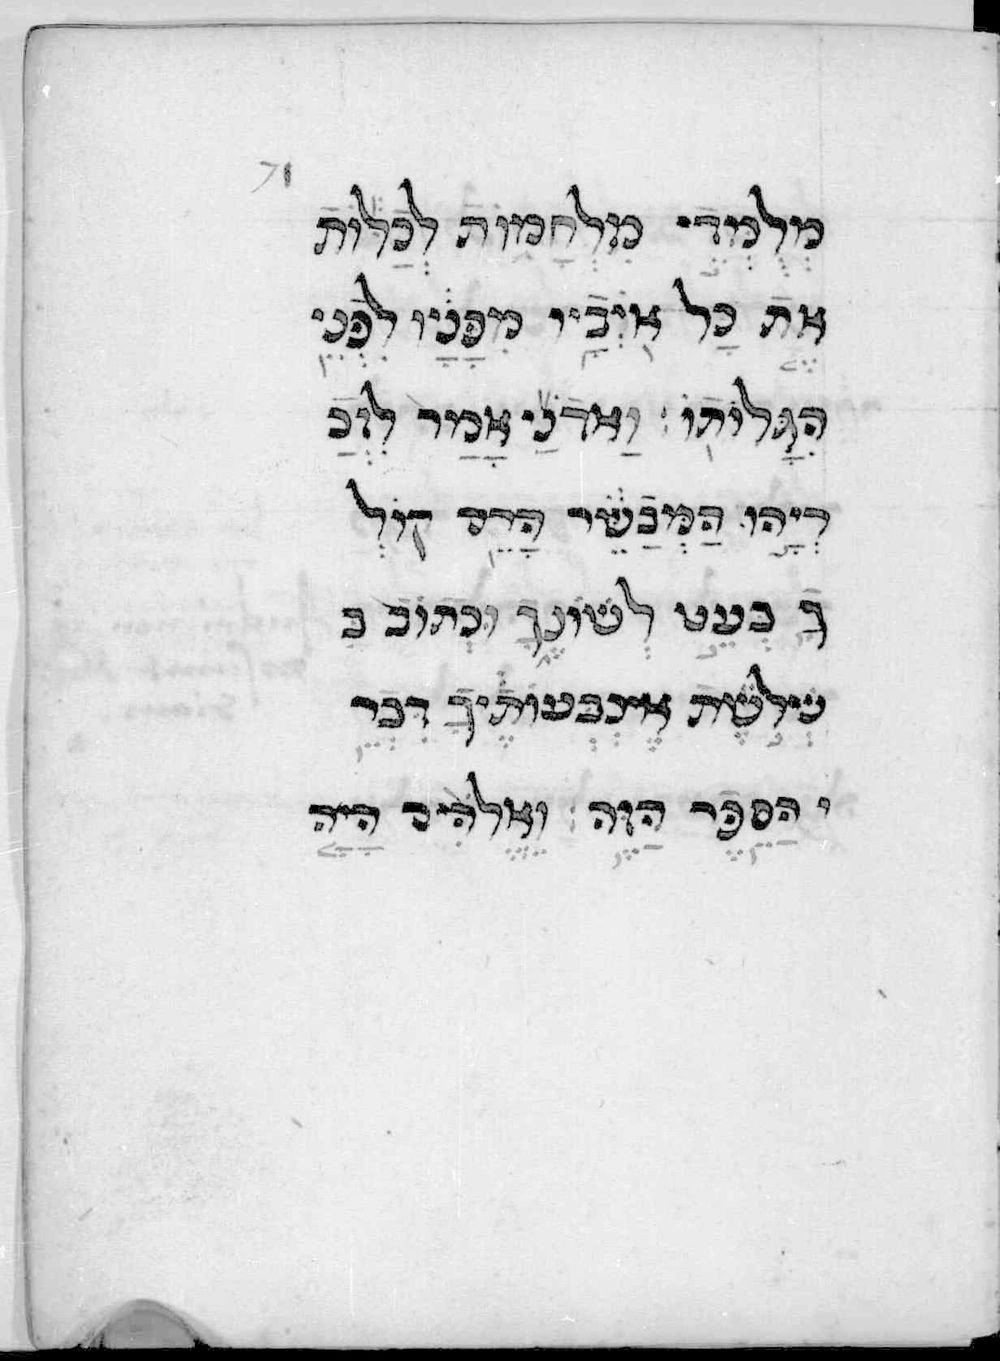 71
מְלֻמְּדֵי מִלְחָמוֹת לְכַלּוֹת
אֶת כָל אוֹיְבָיו מִפָּנָיו לִפְנֵי
הִגָּלוֹתוֹ׃ וַאדֹנַי אָמַר לוֹ כַ
דְיָהוּ הַמְבַשֵּׂר הָרֵם קוֹלְ
ךָ בְּעֵט לְשׁוֹנֶךָ וּכְתוֹב בִּ
שְׁלֹשֶׁת אֶצְבְּעוֹתֶיךָ דִּבְרֵ
י הַסֵּפֶר הַזֶּה׃ וֶאֱלֹהִים הָיָה